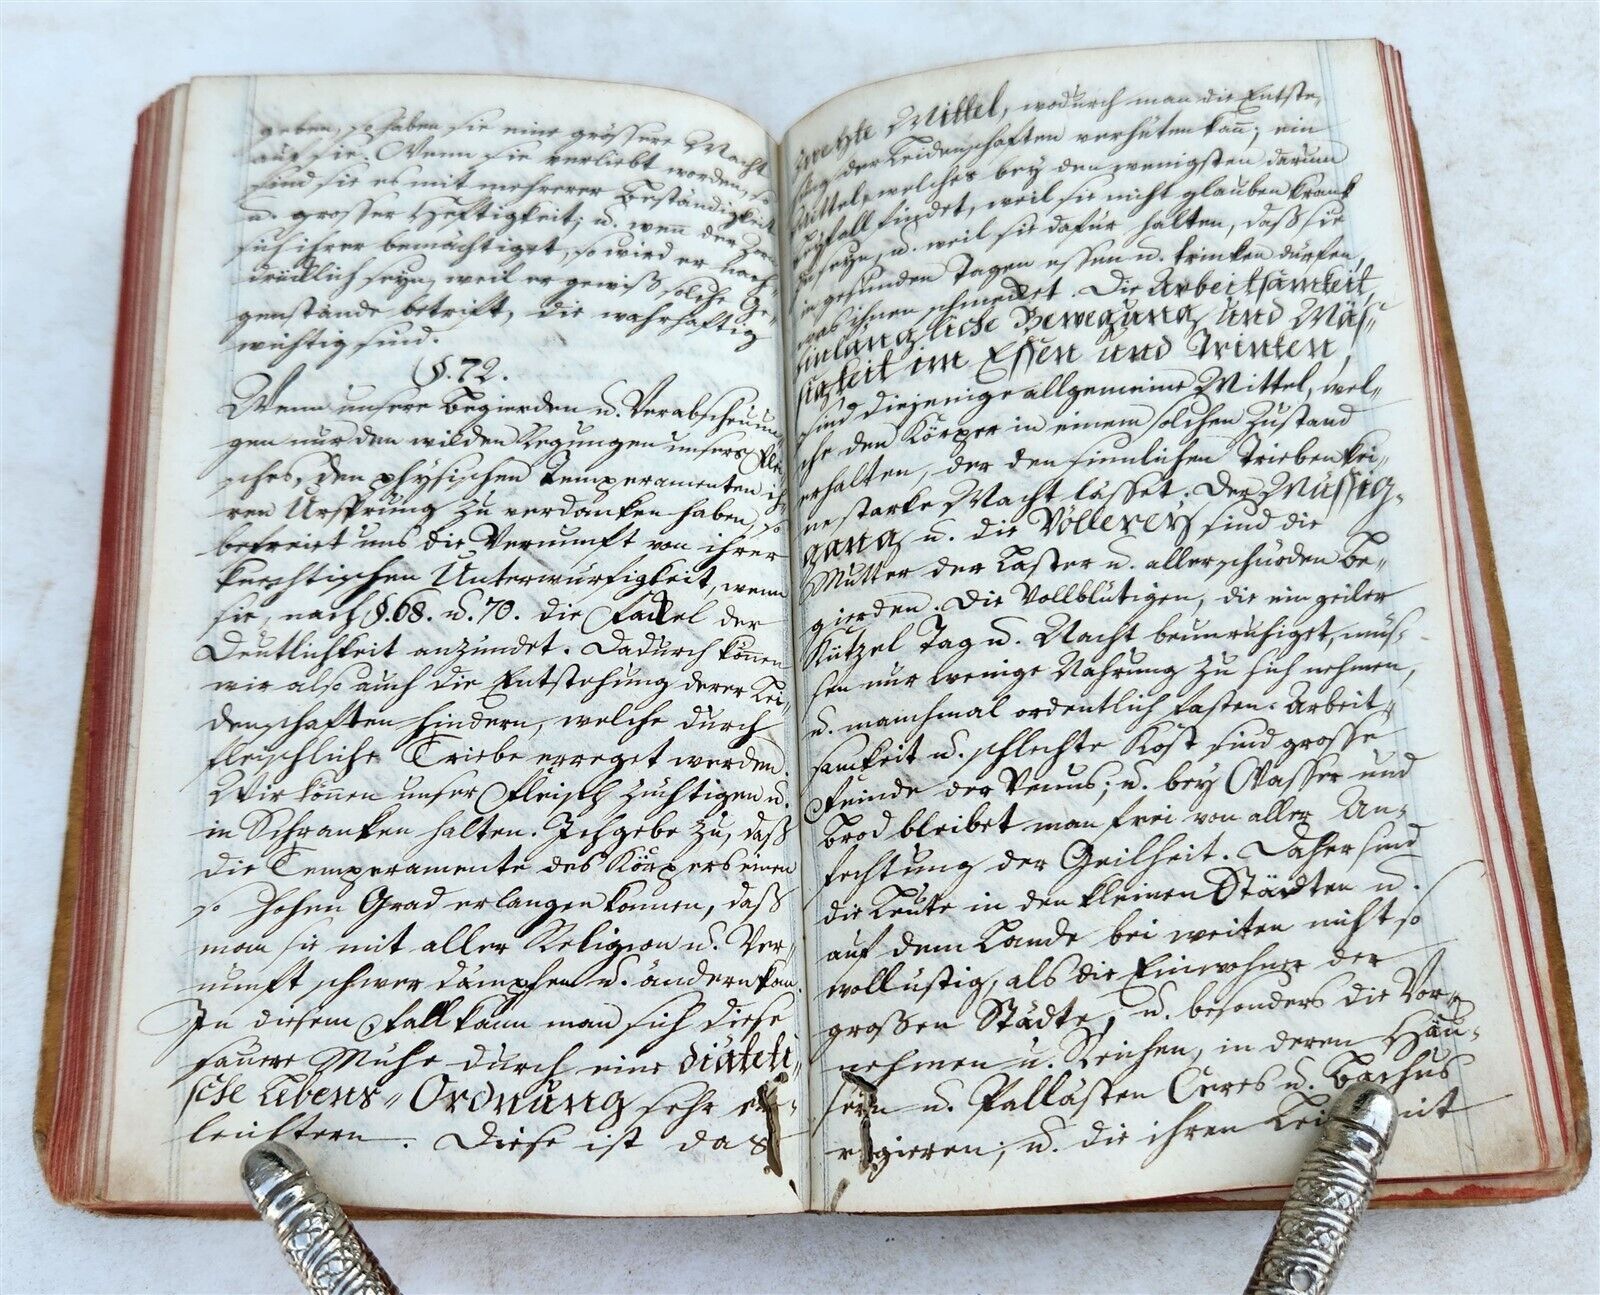 geben, so haben sie eine grössere Macht
auf sie. Wenn sie verliebt worden, so
sind sie es mit mehrerer Beständigkeit
u. grosser Heftigkeit; u. wenn der Zorn
sich ihrer bemächtiget, so wird er nach-
drücklich seyn, weil er gewiß solche Ge-
genstände betrift, die wahrhaftig
wichtig sind.
§. 72.
Wenn unsere Begierden u. Verabscheuun-
gen nur den wilden Regungen unsers Flei-
sches, den physischen Temperamenten ih-
ren Ursprung zu verdanken haben, so
befreiet uns die Vernunft von ihrer
knechtischen Unterwürfigkeit, wenn
sie, nach §. 68. u. 70. die Fackel der
Deutlichkeit anzündet. Dadurch können
wir also auch die Entstehung derer Lei-
denschaften hindern, welche durch
fleischliche Triebe erreget werden.
Wir können unser Fleisch züchtigen u.
in Schranken halten. Ich gebe zu, daß
die Temperamente des Körpers einen
so hohen Grad erlangen können, daß
man sie mit aller Religion u. Ver-
nunft schwer dämpfen u. ändern kan.
In diesem Fall kann man sich diese
sauere Mühe durch eine diäteti-
sche Lebens-Ordnung sehr er-
leichtern. Diese ist das
zweyte Mittel, wodurch man die Entste-
hung der Leidenschaften verhüten kañ; ein
Mittel, welches bey den wenigsten darum
Beyfall findet, weil sie nicht glauben krank
zu seyn, u. weil sie dafür halten, daß sie
in gesunden Tagen essen u. trinken dürfen,
was ihnen schmecket. Die Arbeitsamkeit,
hinlängliche Bewegung und Mäs-
sigkeit im Essen und Trinken,
sind diejenige allgemeine Mittel, wel-
che den Körper in einem solchen Zustand
erhalten, der den sinnlichen Trieben kei-
ne starke Macht lässet. Der Müssig-
gang u. die Völlerey sind die
Mutter der Laster u. aller schnöden Be-
gierden. Die Vollblütigen, die ein geiler
Kützel Tag u. Nacht beunruhiget, müs-
sen nur wenige Nahrung zu sich nehmen,
u. manchmal ordentlich fasten. Arbeit-
samkeit u. schlechte Kost sind grosse
Feinde der Venus; u. bey Wasser und
Brod bleibet man frei von aller An-
fechtung der Geilheit. Daher sind
die Leute in den kleinen Städten u.
auf dem Lande bei weiten nicht so
wollüstig, als die Einwohner der
großen Städte, u. besonders die Vor-
nehmen u. Reichen, in deren Häu-
sern u. Pallästen Ceres u. Bachus
regieren; u. die ihren mit